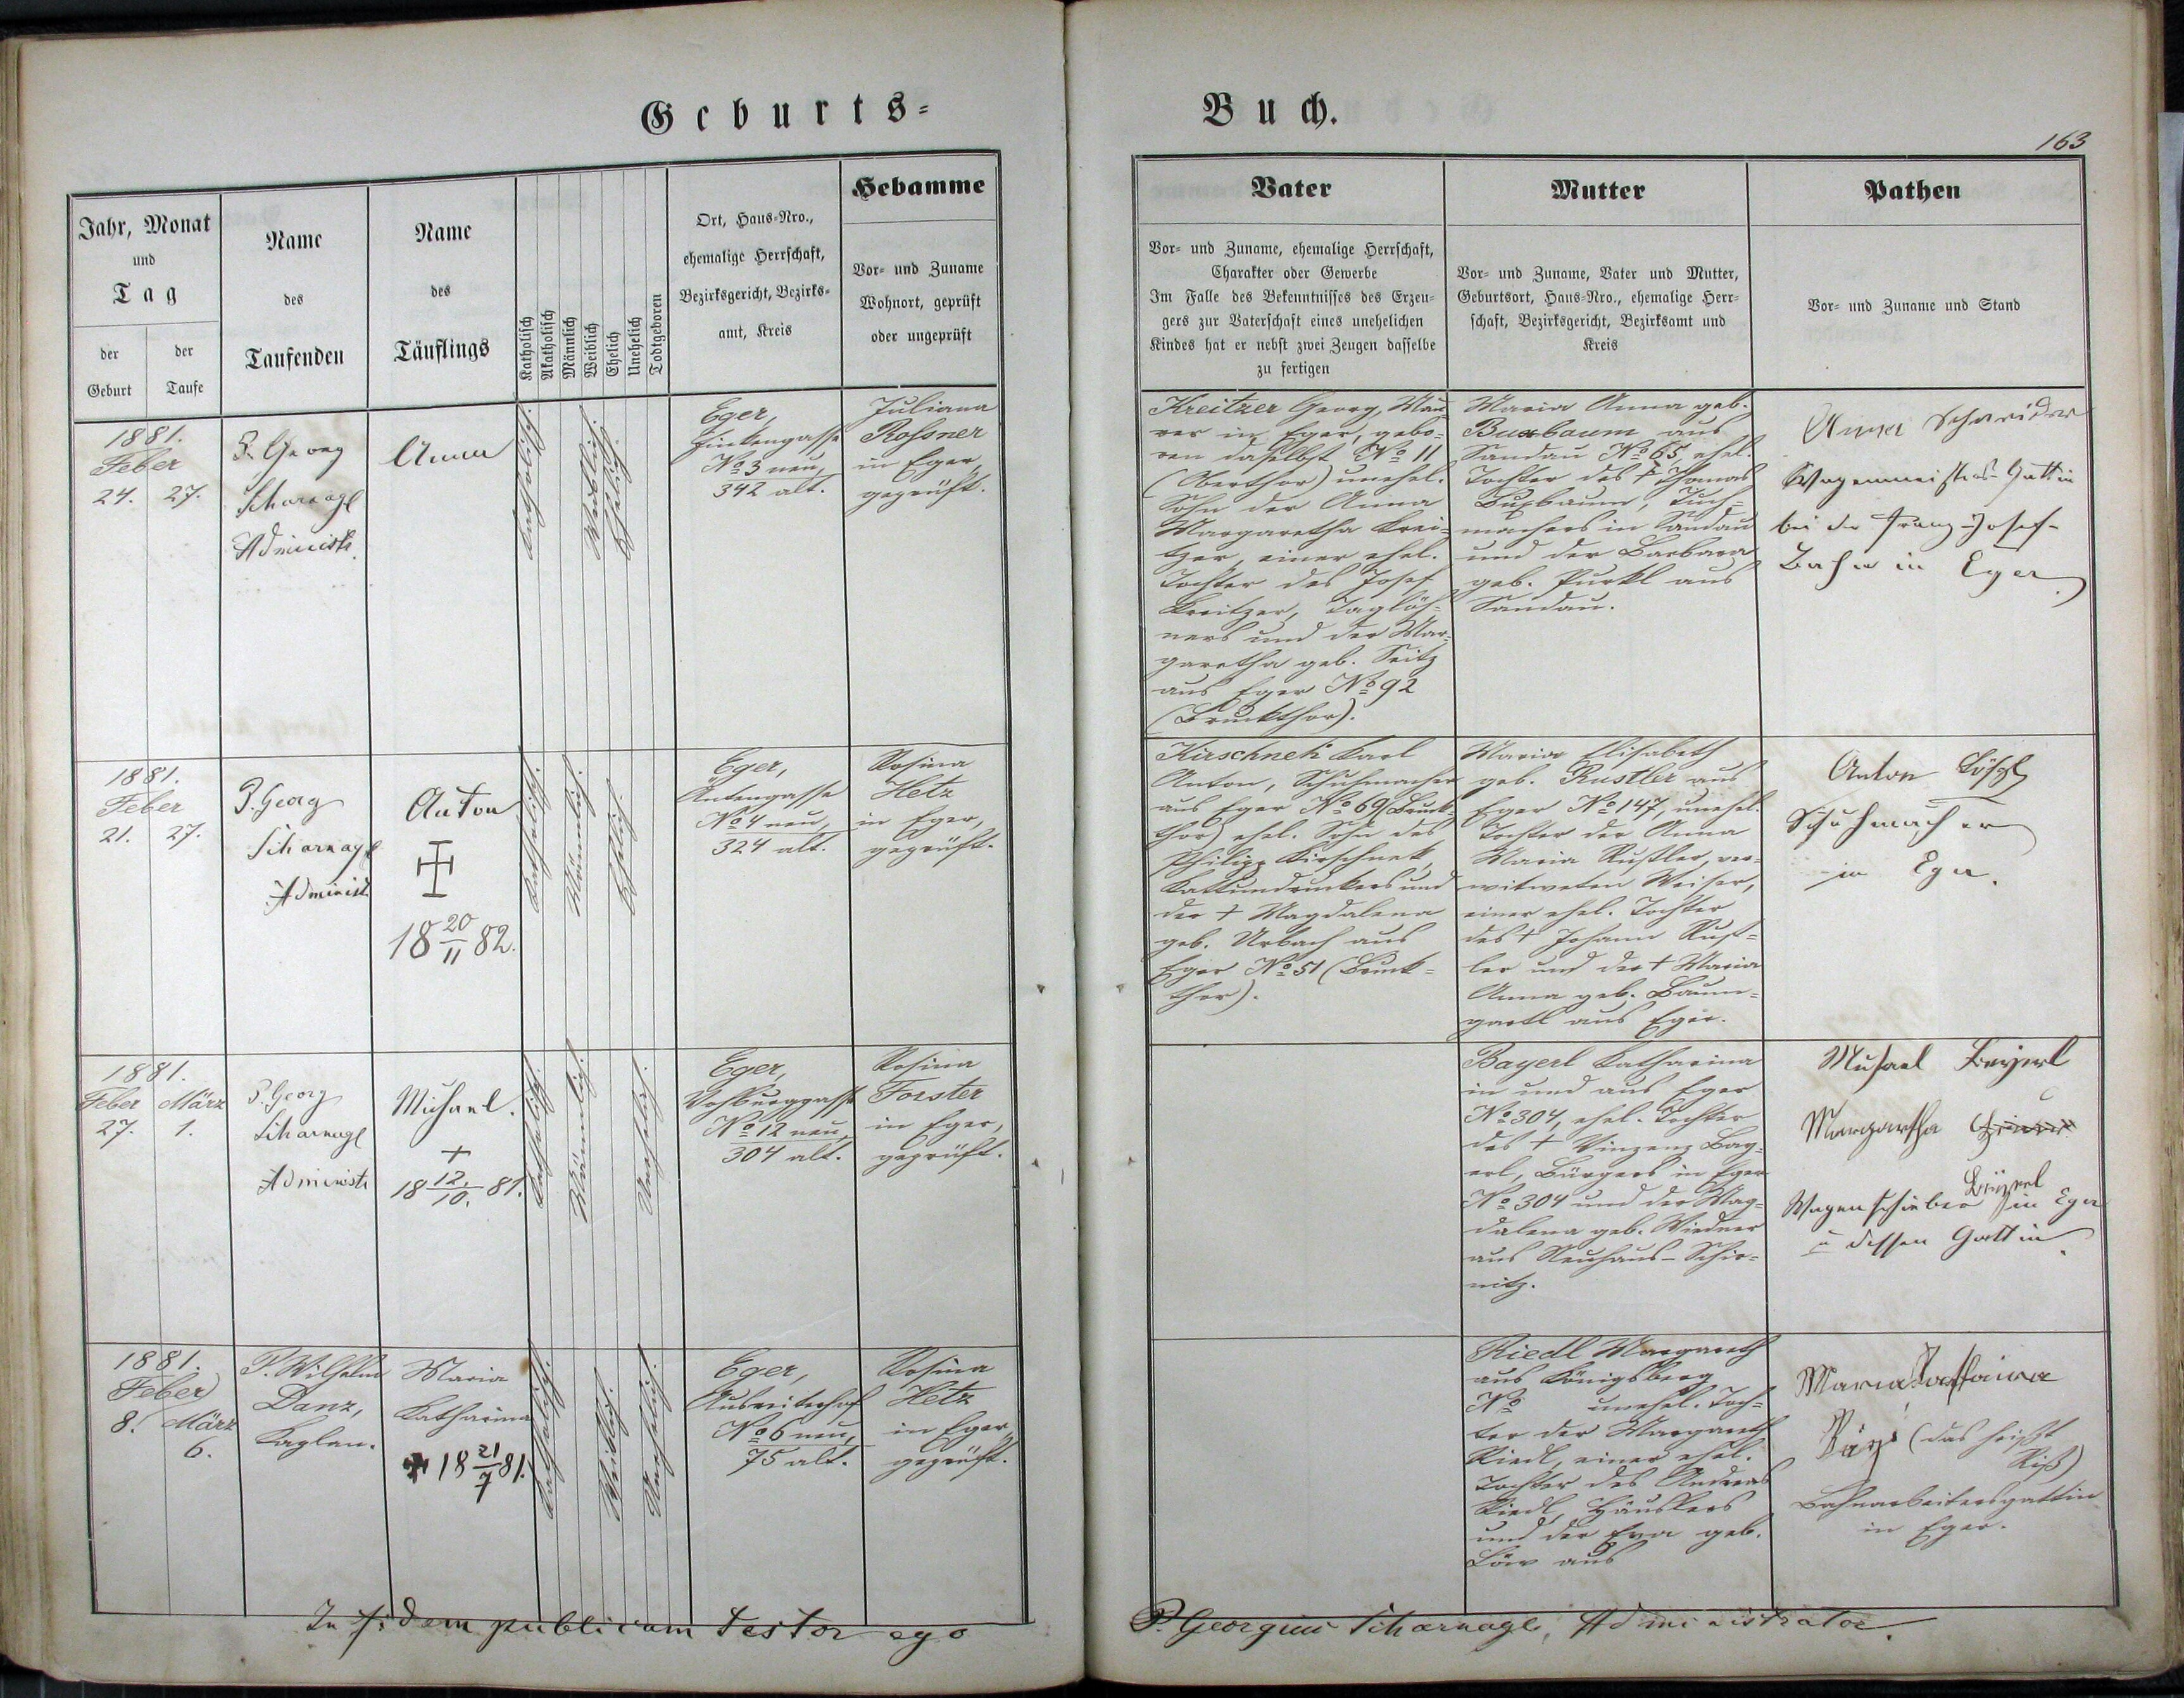 Geburts-
Buch.
163
Jahr, Monat
und
Tag
der
Geburt
der
Taufe
Name
des
Taufenden
Name
des
Täuflings
Katholisch
Akatholisch
Männlich
Weiblich
Ehelich
Unehelich
Todtgeboren
Ort, Haus-Nro.,
ehemalige Herrschaft,
Bezirksgericht, Bezirks-
amt, Kreis
Hebamme
Vor- und Zuname
Wohnort, geprüft
oder ungeprüft
Vater
Vor- und Zuname, ehemalige Herrschaft,
Charakter oder Gewerbe
Im Falle des Bekenntnisses des Erzeu-
gers zur Vaterschaft eines unehelichen
Kindes hat er nebst zwei Zeugen dasselbe
zu fertigen
Mutter
Vor- und Zuname, Vater und Mutter,
Geburtsort, Haus-Nro., ehemalige Herr-
schaft, Bezirksgericht, Bezirksamt und
Kreis
Pathen
Vor- und Zuname und Stand
1881.
Feber
24. 27.
P. Georg
Scharnagl
Administr.
Anna
Katholisch.
Weiblich.
Ehelich.
Eger,
No 3 neu,
342 alt.
Juliana
Rossner
in Eger,
geprüft.
Kreitzer Georg, Mau-
rer in Eger, gebo-
ren daselbst No 11
(Oberthor) unehel.
Sohn der Anna
Margaretha Krei-
tzer, einer ehel.
Tochter des Josef
Kreitzer, Taglöh-
ners und der Mar-
garetha geb. Seitz
aus Eger No 92
(Bruckthor).
Maria Anna geb.
Buxbaum aus
Sandau No 65, ehel.
Tochter des † Thomas
Buxbaum, Tuch-
machers in Sandau
und der Barbara
geb. Purkl aus
Sandau.
Anna Schneider
Wagenmeisters-Gattin
bei der Franz-Josef-
Bahn in Eger.
1881.
Feber
21. 27.
P. Georg
Scharnagl
Administr
Anton
†
18 20/11 82.
Katholisch.
Männlich.
Ehelich.
Eger,
No 4 neu,
324 alt.
Rosina
Hetz
in Eger,
geprüft.
Kirschnek Karl
Anton, Schuhmacher
aus Eger No 69 (Bruck-
thor) ehel. Sohn des
Philipp Kirschnek,
Kattundruckers und
der † Magdalena
geb. Urbach aus
Eger No 51 (Bruck-
thor).
Maria Elisabeth
geb. Rustler aus
Eger No 147, unehel.
Tochter der Anna
Maria Rustler, ver-
witweten Weiser,
einer ehel. Tochter
des † Johann Rust-
ler und der † Maria
Anna geb. Baum-
gartl aus Eger.
Anton
Schuhmacher
in Eger.
1881.
Feber März
27. 1.
P. Georg
Scharnagl
Administr
Michael.
†
18 12./10. 81.
Katholisch.
Männlich.
Unehelich.
Eger,
No 12 neu,
304 alt.
Rosina
Forster
in Eger,
geprüft.
Bayerl Katharina
in und aus Eger
No 304, ehel. Tochter
des † Vinzenz Bay-
erl, Bürgers in Eger
No 304 und der Mag-
dalena geb. Wiedner
aus Neuhaus-Schir-
nitz.
Michael Beyerl
Margaretha
Beyerl
Wagenschieber in Eger
u dessen Gattin.
1881.
Feber
8. März
6.
P. Wilhelm
Danz,
Kaplan.
Maria
Katharina
† 18 21/7 81.
Katholisch.
Weiblich.
Unehelich.
Eger,
No 6 neu,
75 alt.
Rosina
Hetz
in Eger,
geprüft.
Riedl Margareth
aus Königsberg
No unehel. Toch-
ter der Margareth
Riedl, einer ehel.
Tochter des Andreas
Riedl, Häuslers
und der Eva geb.
Löw aus
Maria
(das heißt
Riß)
Bahnarbeitersgattin
in Eger.
In fidem publicam testor ego
P. Georgius Scharnagl, Administrator.